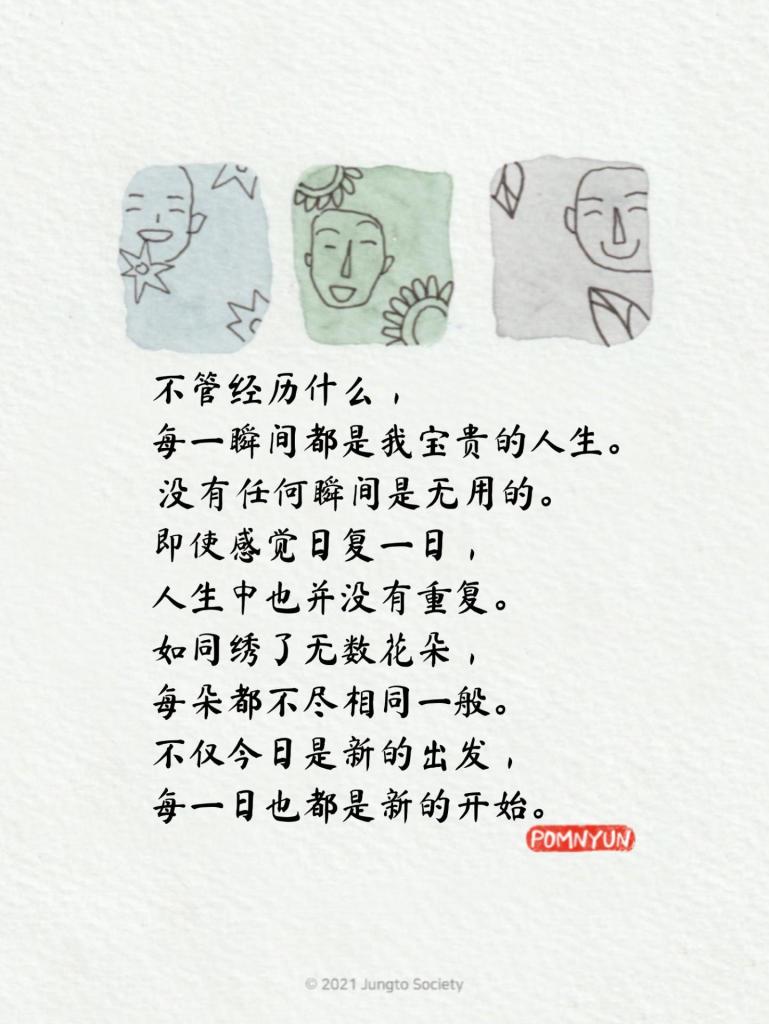 不管经历什么，
每一瞬间都是我宝贵的人生。
没有任何瞬间是无用的。
即使感觉日复一日，
人生中也并没有重复。
如同绣了无数花朵，
每朵都不尽相同一般。
不仅今日是新的出发，
每一日也都是新的开始。
POMNYUN
© 2021 Jungto Society